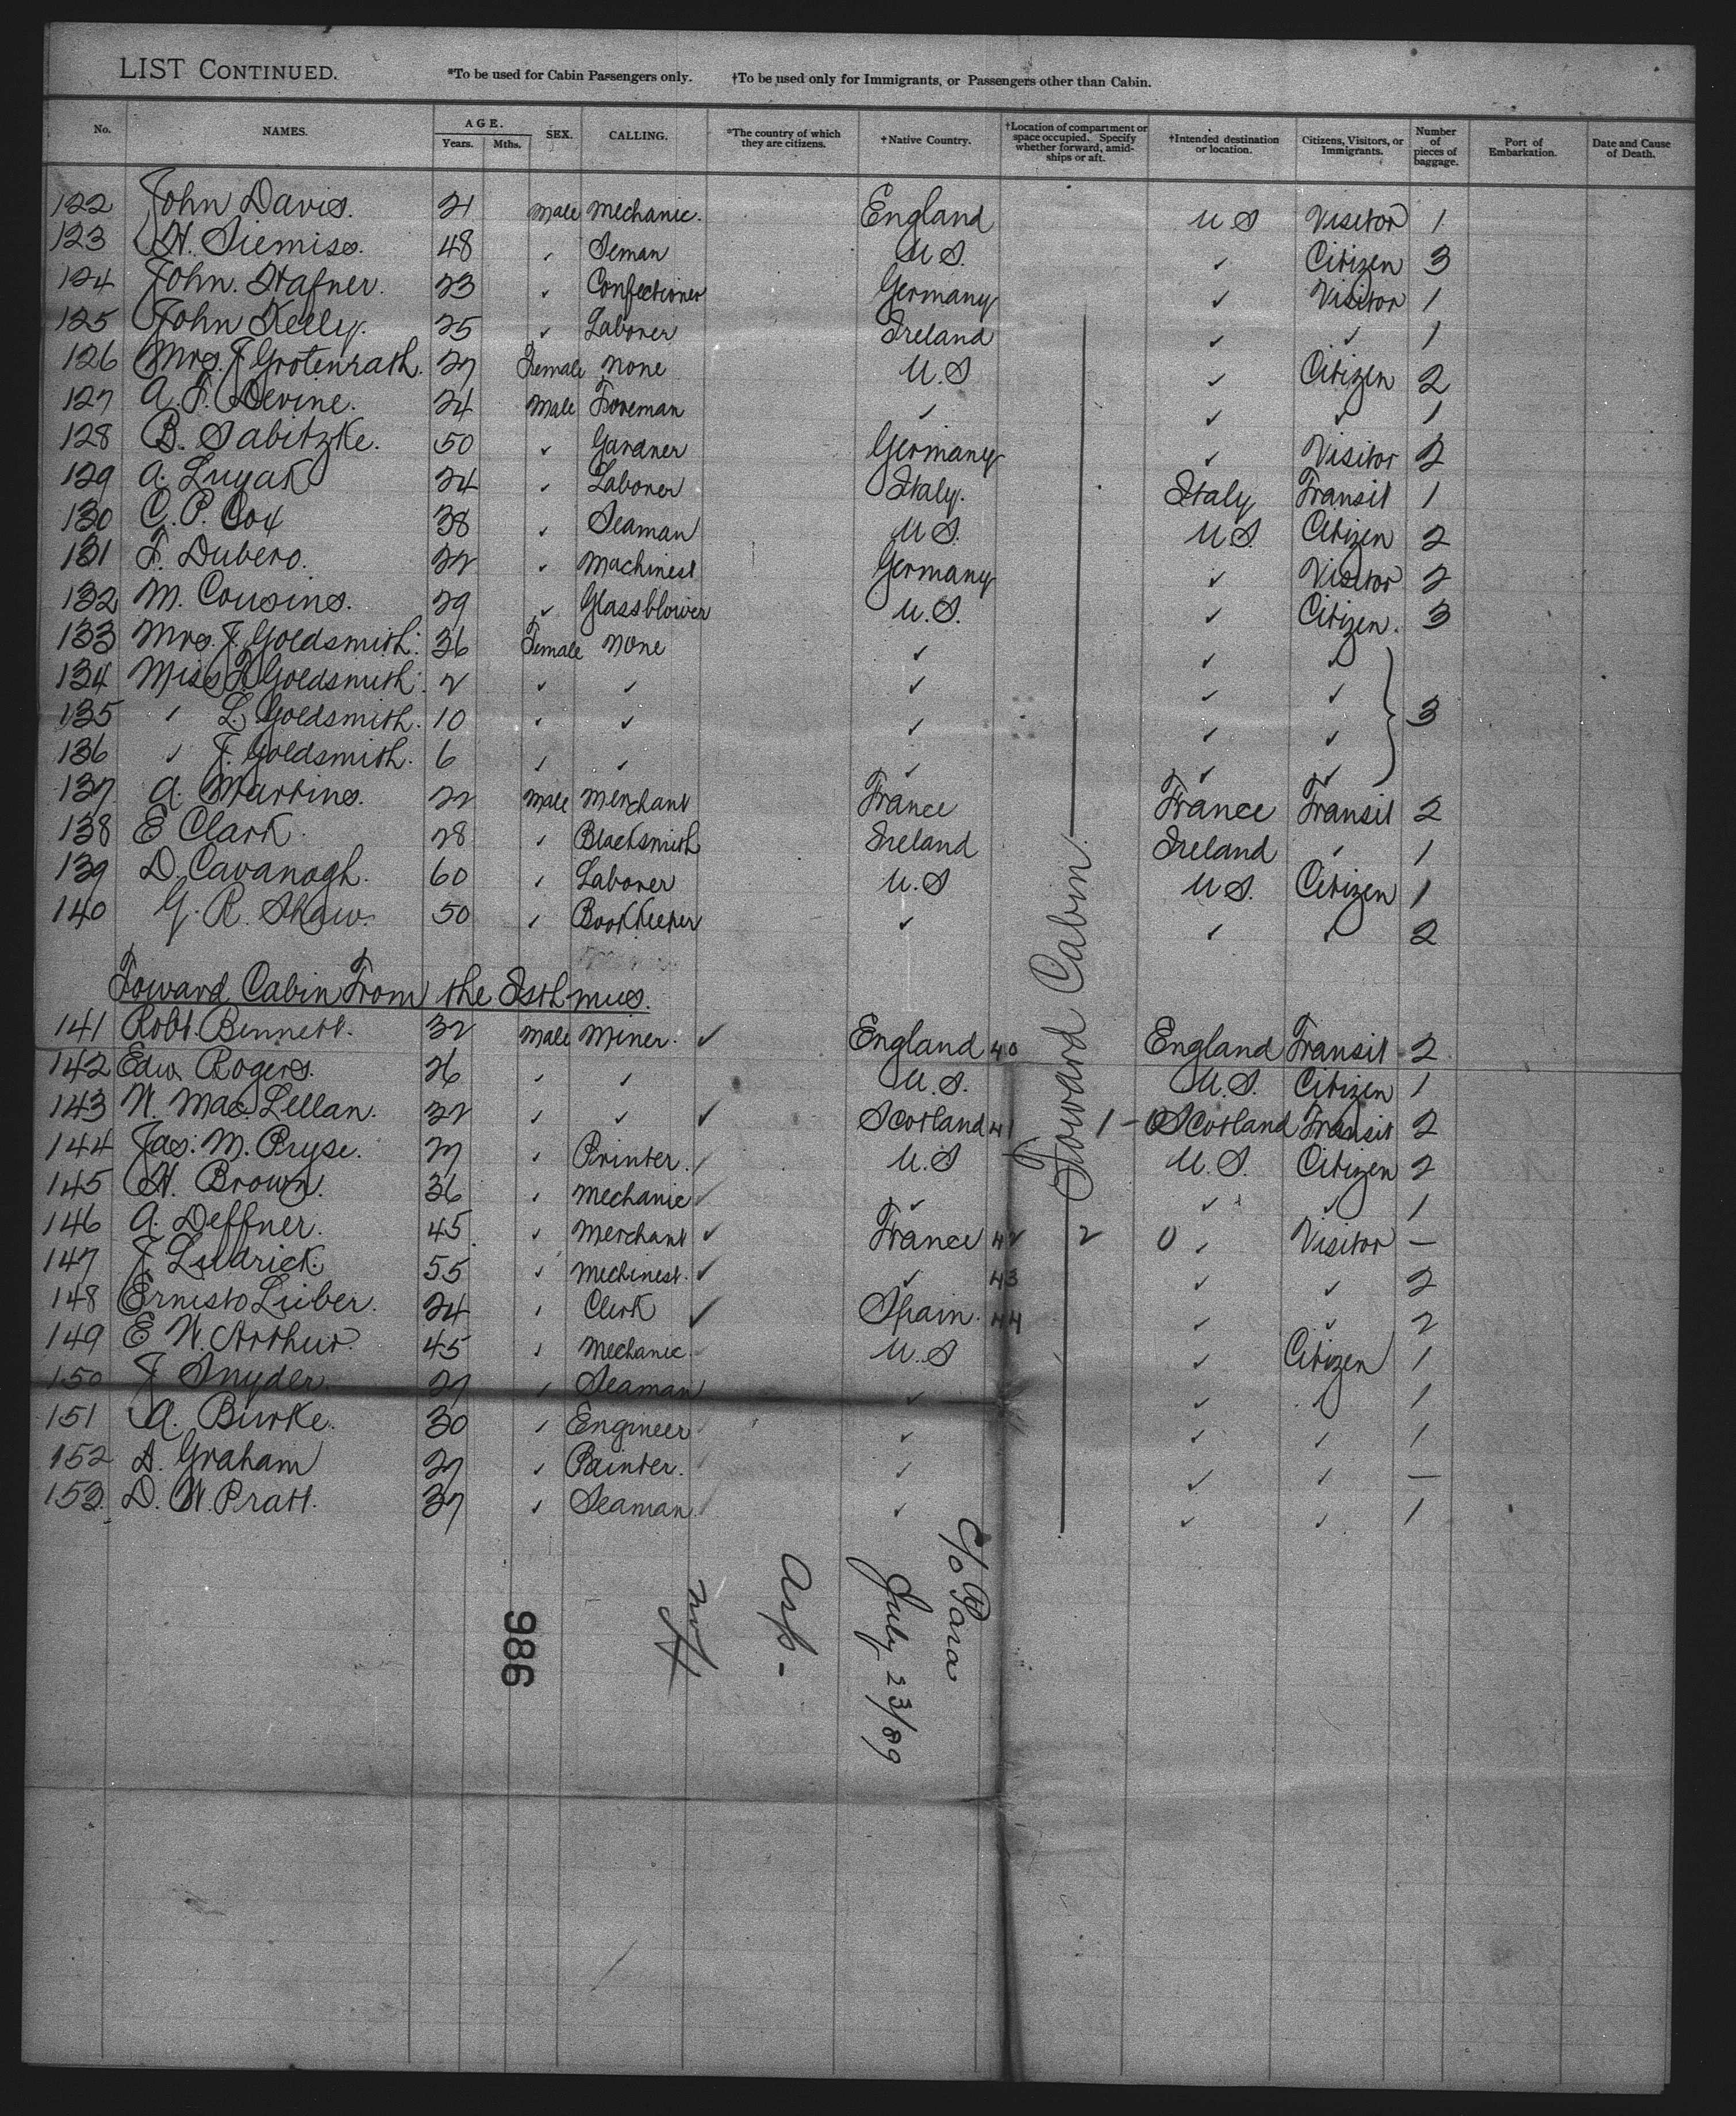 LIST CONTINUED. *To be used for Cabin Passengers only. †To be used only for Immigrants, or Passengers other than Cabin.
No. NAMES. AGE. Years. Mths. SEX. CALLING. *The country of which they are citizens. †Native Country. †Location of compartment or space occupied. Specify whether forward, amidships or aft. †Intended destination or location. Citizens, Visitors, or Immigrants. Number of pieces of baggage. Port of Embarkation. Date and Cause of Death.
122 John Davis. 21 Male Mechanic. England U S Visitor 1
123 H. Siemiss. 48 " Seman U.S. ✓ Citizen 3
124 John. Hafner. 23 " Confectioner Germany ✓ Visitor 1
125 John Kelly. 25 ✓ Laborer Ireland ✓ ✓ 1
126 Mrs. J Grotenrath. 27 Female None U.S ✓ Citizen 2
127 A. F. Devine. 24 Male Foreman ✓ ✓ ✓ 1
128 B. Sabitzke. 50 ✓ Gardner Germany ✓ Visitor 2
129 A. Luyak 24 " Laborer Italy. Italy Transit 1
130 C. P. Cox 38 ✓ Seaman U S. U S. Citizen 2
131 F. Dubero. 22 ✓ Machinest Germany ✓ Visitor 2
132 M. Cousins. 29 ✓ Glassblower U.S. ✓ Citizen. 3
133 Mrs. J. Goldsmith. 36 Female None ✓ ✓ ✓
134 Miss R Goldsmith. 2 ✓ ✓ ✓ ✓ ✓
135 " L. Goldsmith. 10 ✓ ✓ ✓ ✓ ✓ 3
136 " J. Goldsmith. 6 ✓ ✓ ✓ ✓ ✓
137 A. Martins. 22 Male Merchant France France Transit 2
138 E Clark. 28 " Blacksmith Ireland Ireland " 1
139 D. Cavanagh. 60 " Laborer U.S U S. Citizen 1
140 G. R. Shaw. 50 " Bookkeeper ✓ ✓ ✓ 2
Foward Cabin From the Isthmus.
Foward Cabin
141 Robt. Bennett. 32 Male Miner. ✓ England 40 England Transit 2
142 Edw Rogers. 26 " " U.S. U.S. Citizen 1
143 W. Mac. Lellan. 32 " ✓ ✓ Scotland 41 1 - 0 Scotland Transit 2
144 Jas. M. Pryse. 27 " Printer. ✓ U.S U.S. Citizen 2
145 H. Brown. 36 " Mechanic ✓ ✓ ✓ ✓ 1
146 A. Deffner. 45. " Merchant ✓ France 42 2 0 " Visitor —
147 J. Ludrick. 55 " Mechinest. ✓ ✓ 43 ✓ ✓ 2
148 Ernesto Luber. 24 " Clerk ✓ Spain. 44 ✓ ✓ 2
149 E. W. Arthur. 45 " Mechanic. ✓ U.S ✓ Citizen 1
150 J Snyder. 27 " Seaman ✓ ✓ ✓ 1
151 A. Burke. 30 " Engineer ✓ ✓ ✓ ✓ 1
152 A. Graham 27 " Painter. ✓ ✓ ✓ ✓ —
153. D. W. Pratt. 37 " Seaman ✓ ✓ ✓ ✓ 1
July 23/89
Asp-
986